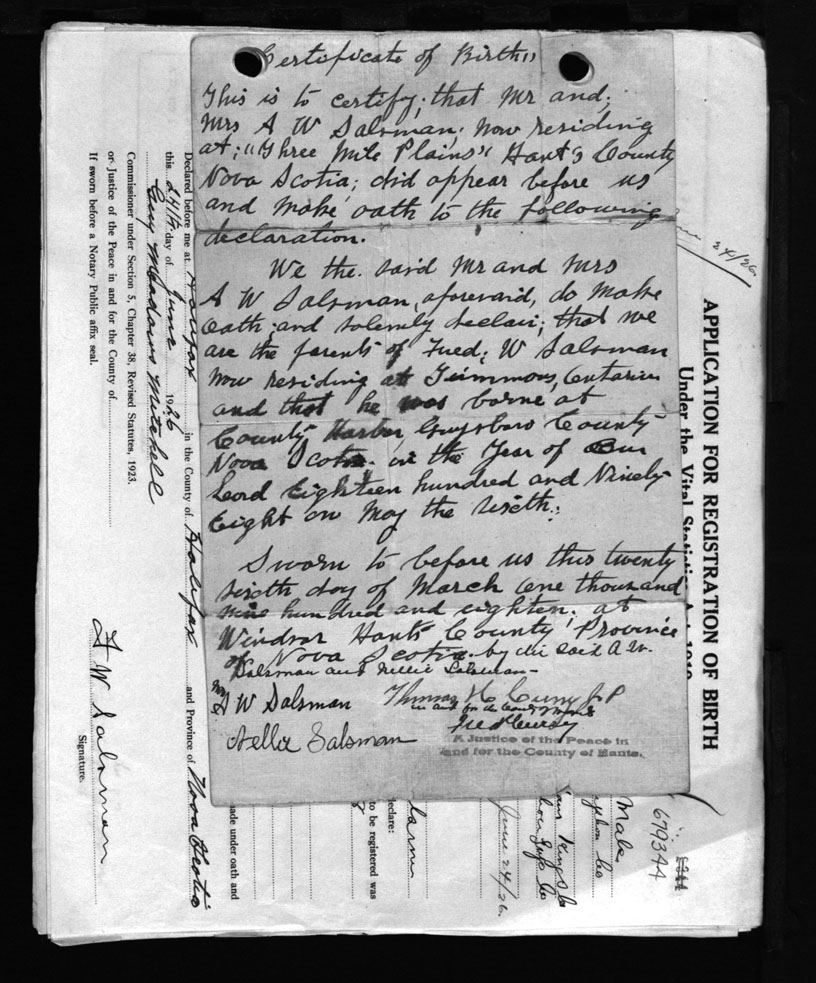 Certificate of Birth"
This is to certify; that Mr and;
Mrs A W Salsman; now residing
at; "Three Mile Plains" Hant's County
Nova Scotia; did appear before us
and make oath to the following
declaration.
We the said Mr and Mrs
A W Salsman, aforesaid, do make
Oath; and solemly declair; that we
are the parents of Fred; W Salsman
now residing at Timmons, Ontario
and that he was borne at
County Harbor, Guysboro County
Nova Scotia in the Year of Our
Lord Eighteen hundred and Ninety
Eight on May the sixth.
Sworn to before us this twenty
sixth day of March One thousand
nine hundred and eighten. at
Windsor Hants County Province
of Nova Scotia. by the said A. W.
Salsman and Nellie Salsman-
A W Salsman
Thomas H Curry J P
in and for the County of Hants
Nellie Salsman
A Justice of the Peace in
and for the County of Hants.
APPLICATION FOR REGISTRATION OF BIRTH
Under the Vital Statistics Act, 1919
June 24/26.
679344
Male
June 24/26.
declare:
to be registered was
made under oath and
Declared before me at Halifax in the County of Halifax and Province of Nova Scotia
this 24th day of June 1926
Guy Meadows Mitchell
Commissioner under Section 5, Chapter 38, Revised Statutes, 1923.
or Justice of the Peace in and for the County of
If sworn before a Notary Public affix seal.
F W Salsman
Signature.